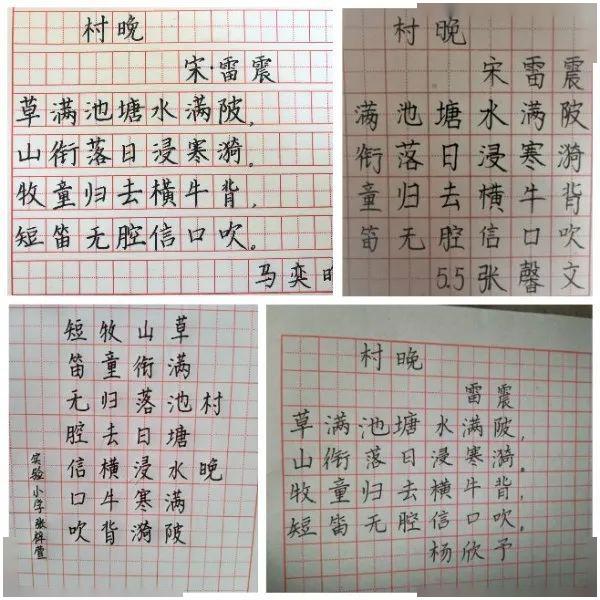 村晚
宋·雷震
草满池塘水满陂,
山衔落日浸寒漪。
牧童归去横牛背,
短笛无腔信口吹。
马奕
村晚
宋雷震
满池塘水满陂
衔落日浸寒漪
童归去横牛背
笛无腔信口吹
5.5张馨文
村晚
草满池塘水满陂
山衔落日浸寒漪
牧童归去横牛背
短笛无腔信口吹
实验小学 张
村晚
雷震
草满池塘水满陂,
山衔落日浸寒漪。
牧童归去横牛背,
短笛无腔信口吹。
杨欣予